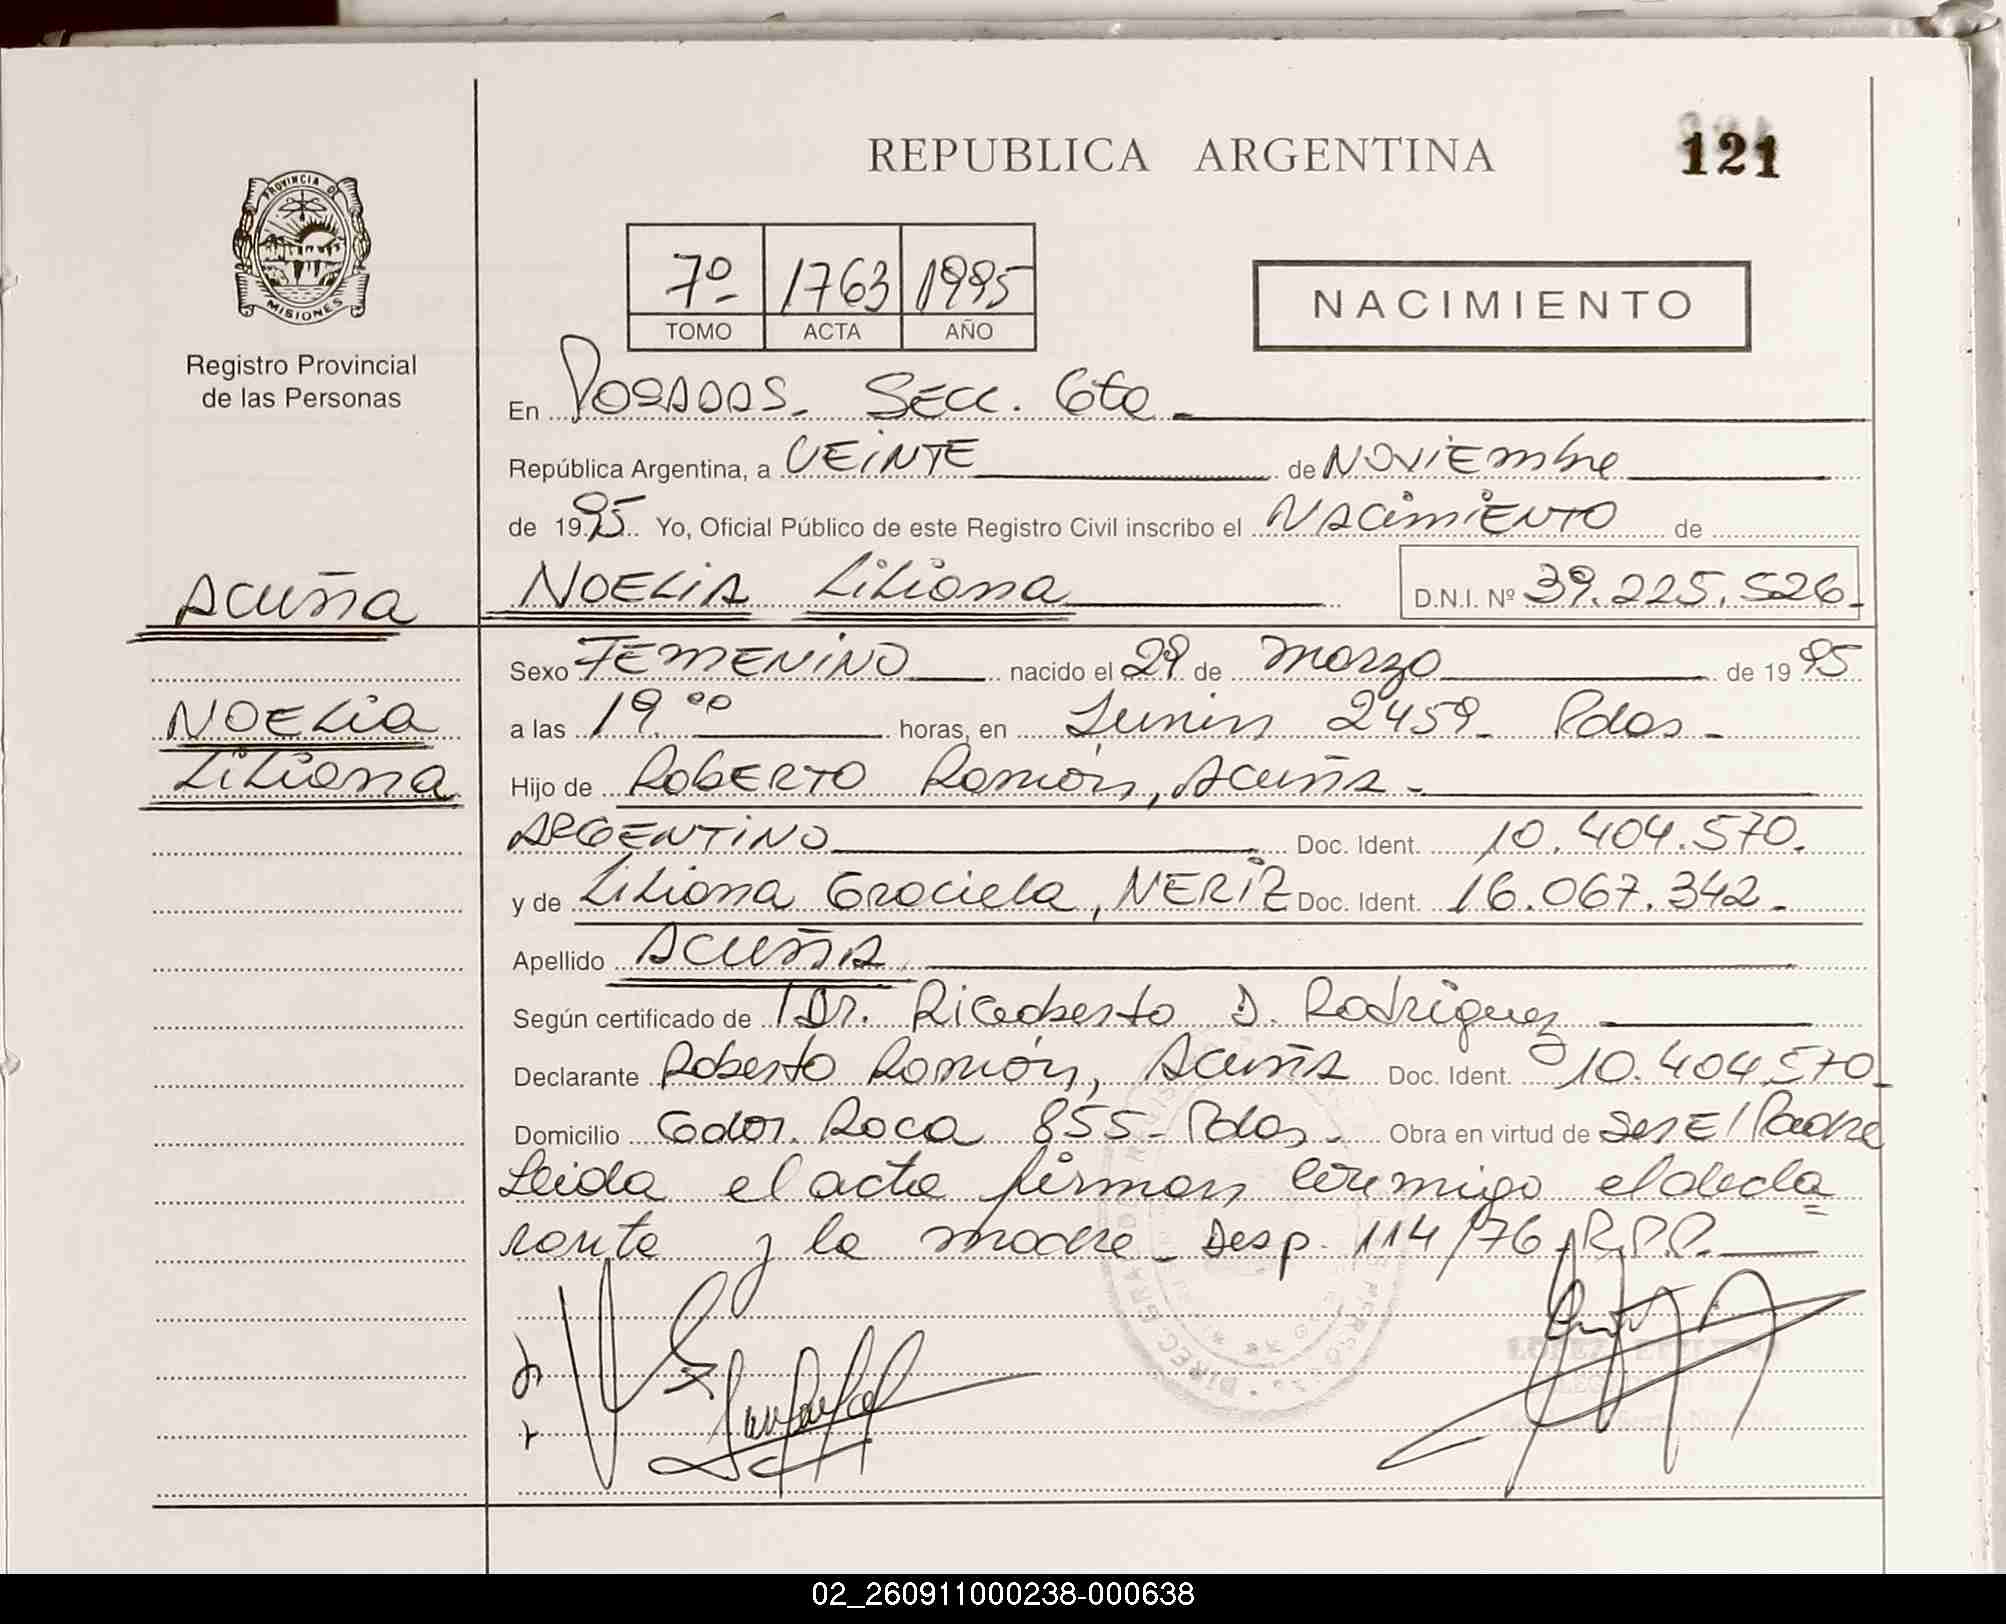 REPUBLICA ARGENTINA
121
PROVINCIA D
MISIONES
Registro Provincial
de las Personas
7º 1763 1995
TOMO ACTA AÑO
NACIMIENTO
En Posadas. Secc. 6ta
República Argentina, a VEINTE de NOViEmbre
de 1995 Yo, Oficial Público de este Registro Civil inscribo el NACimiENTO de
Acuña
NOELiA Liliana
D.N.I. Nº 39.225.526
Sexo FEMENINO nacido el 29 de marzo de 1995
NOELia
Liliana
a las 19.00 horas, en Junin 2459 - Pdas -
Hijo de ROBERTO Ramón, Acuña -
ARGENTINO Doc. Ident. 10.404.570.
y de Liliana Graciela, NERIZ Doc. Ident. 16.067.342 -
Apellido ACUÑA
Según certificado de Dr. Rigoberto D. Rodriguez
Declarante Roberto Ramón, Acuña Doc. Ident. 10.404.570
Domicilio Gdor. Roca 855 - Pdas - Obra en virtud de ser El Padre
Leida el acta firman conmigo el decla
rante y la madre - Desp. 114/76 R.P.P.
LOPEZ
02_260911000238-000638